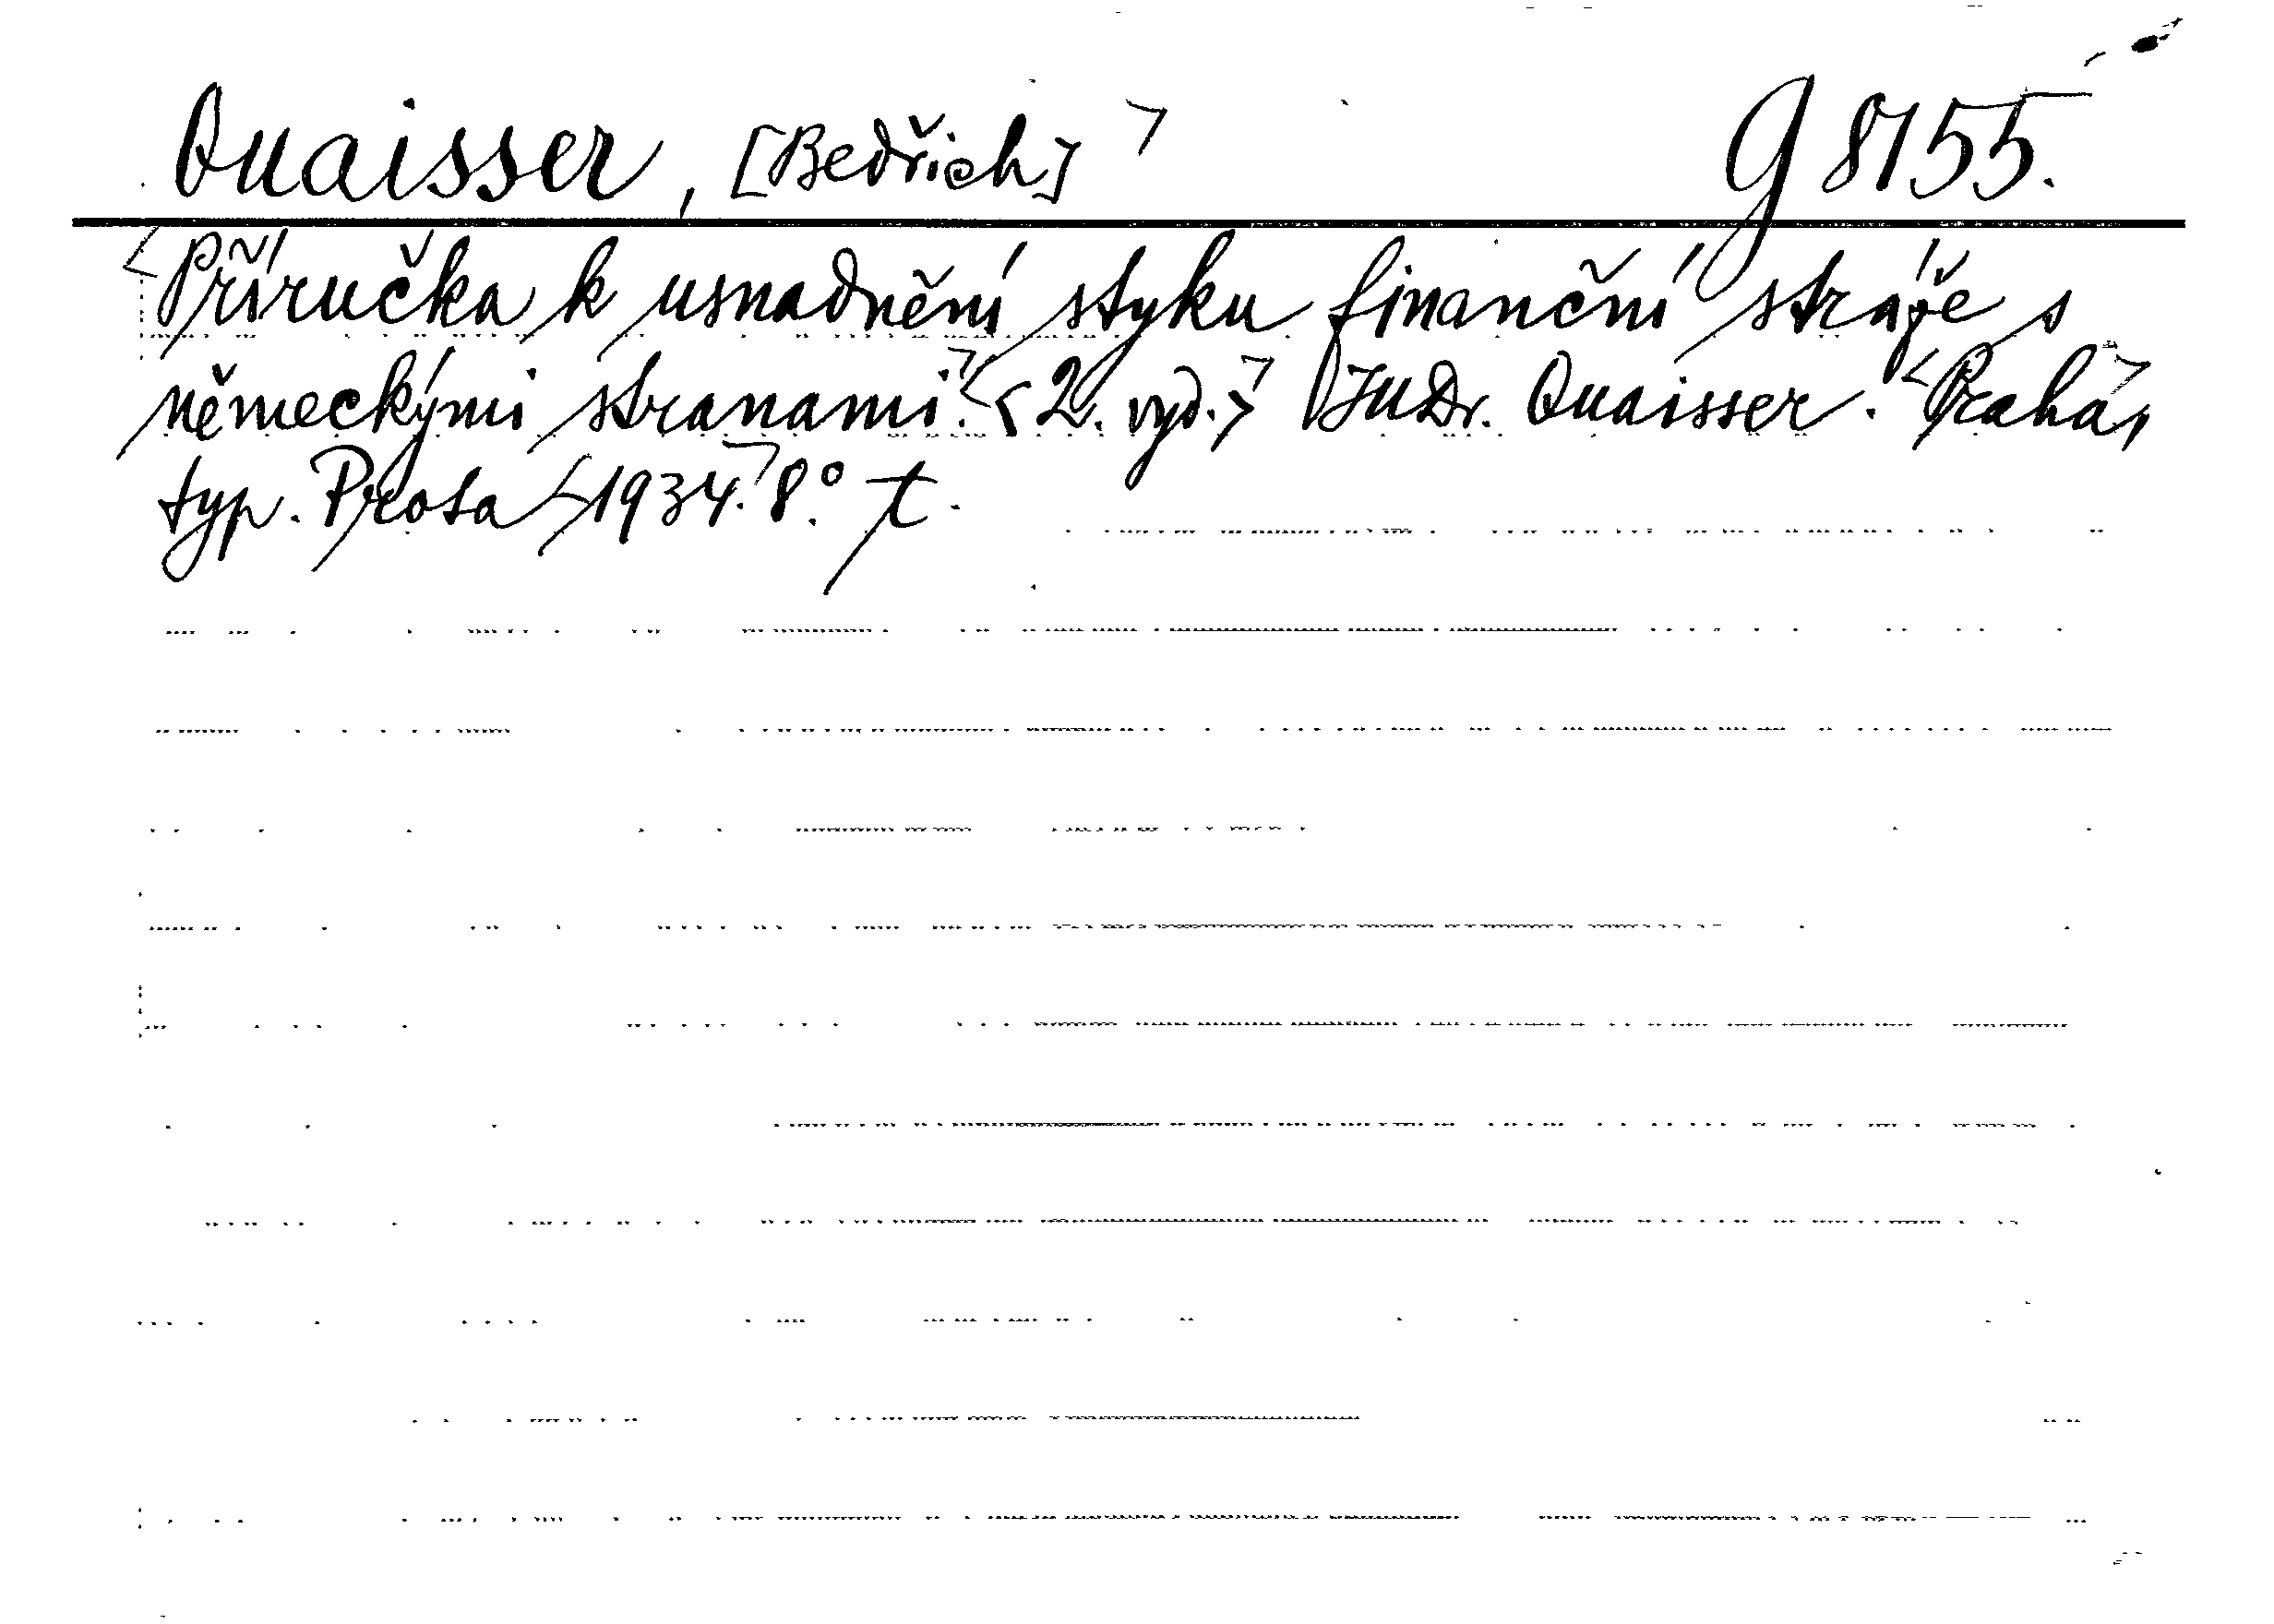 Quaisser, [Bedřich] g 8155.
Příručka k usnadnění styku finanční stráže s
německými stranami. <2. vyd.> JUDr. Quaisser. Praha,
typ. Prosa 1934. 8°. t.